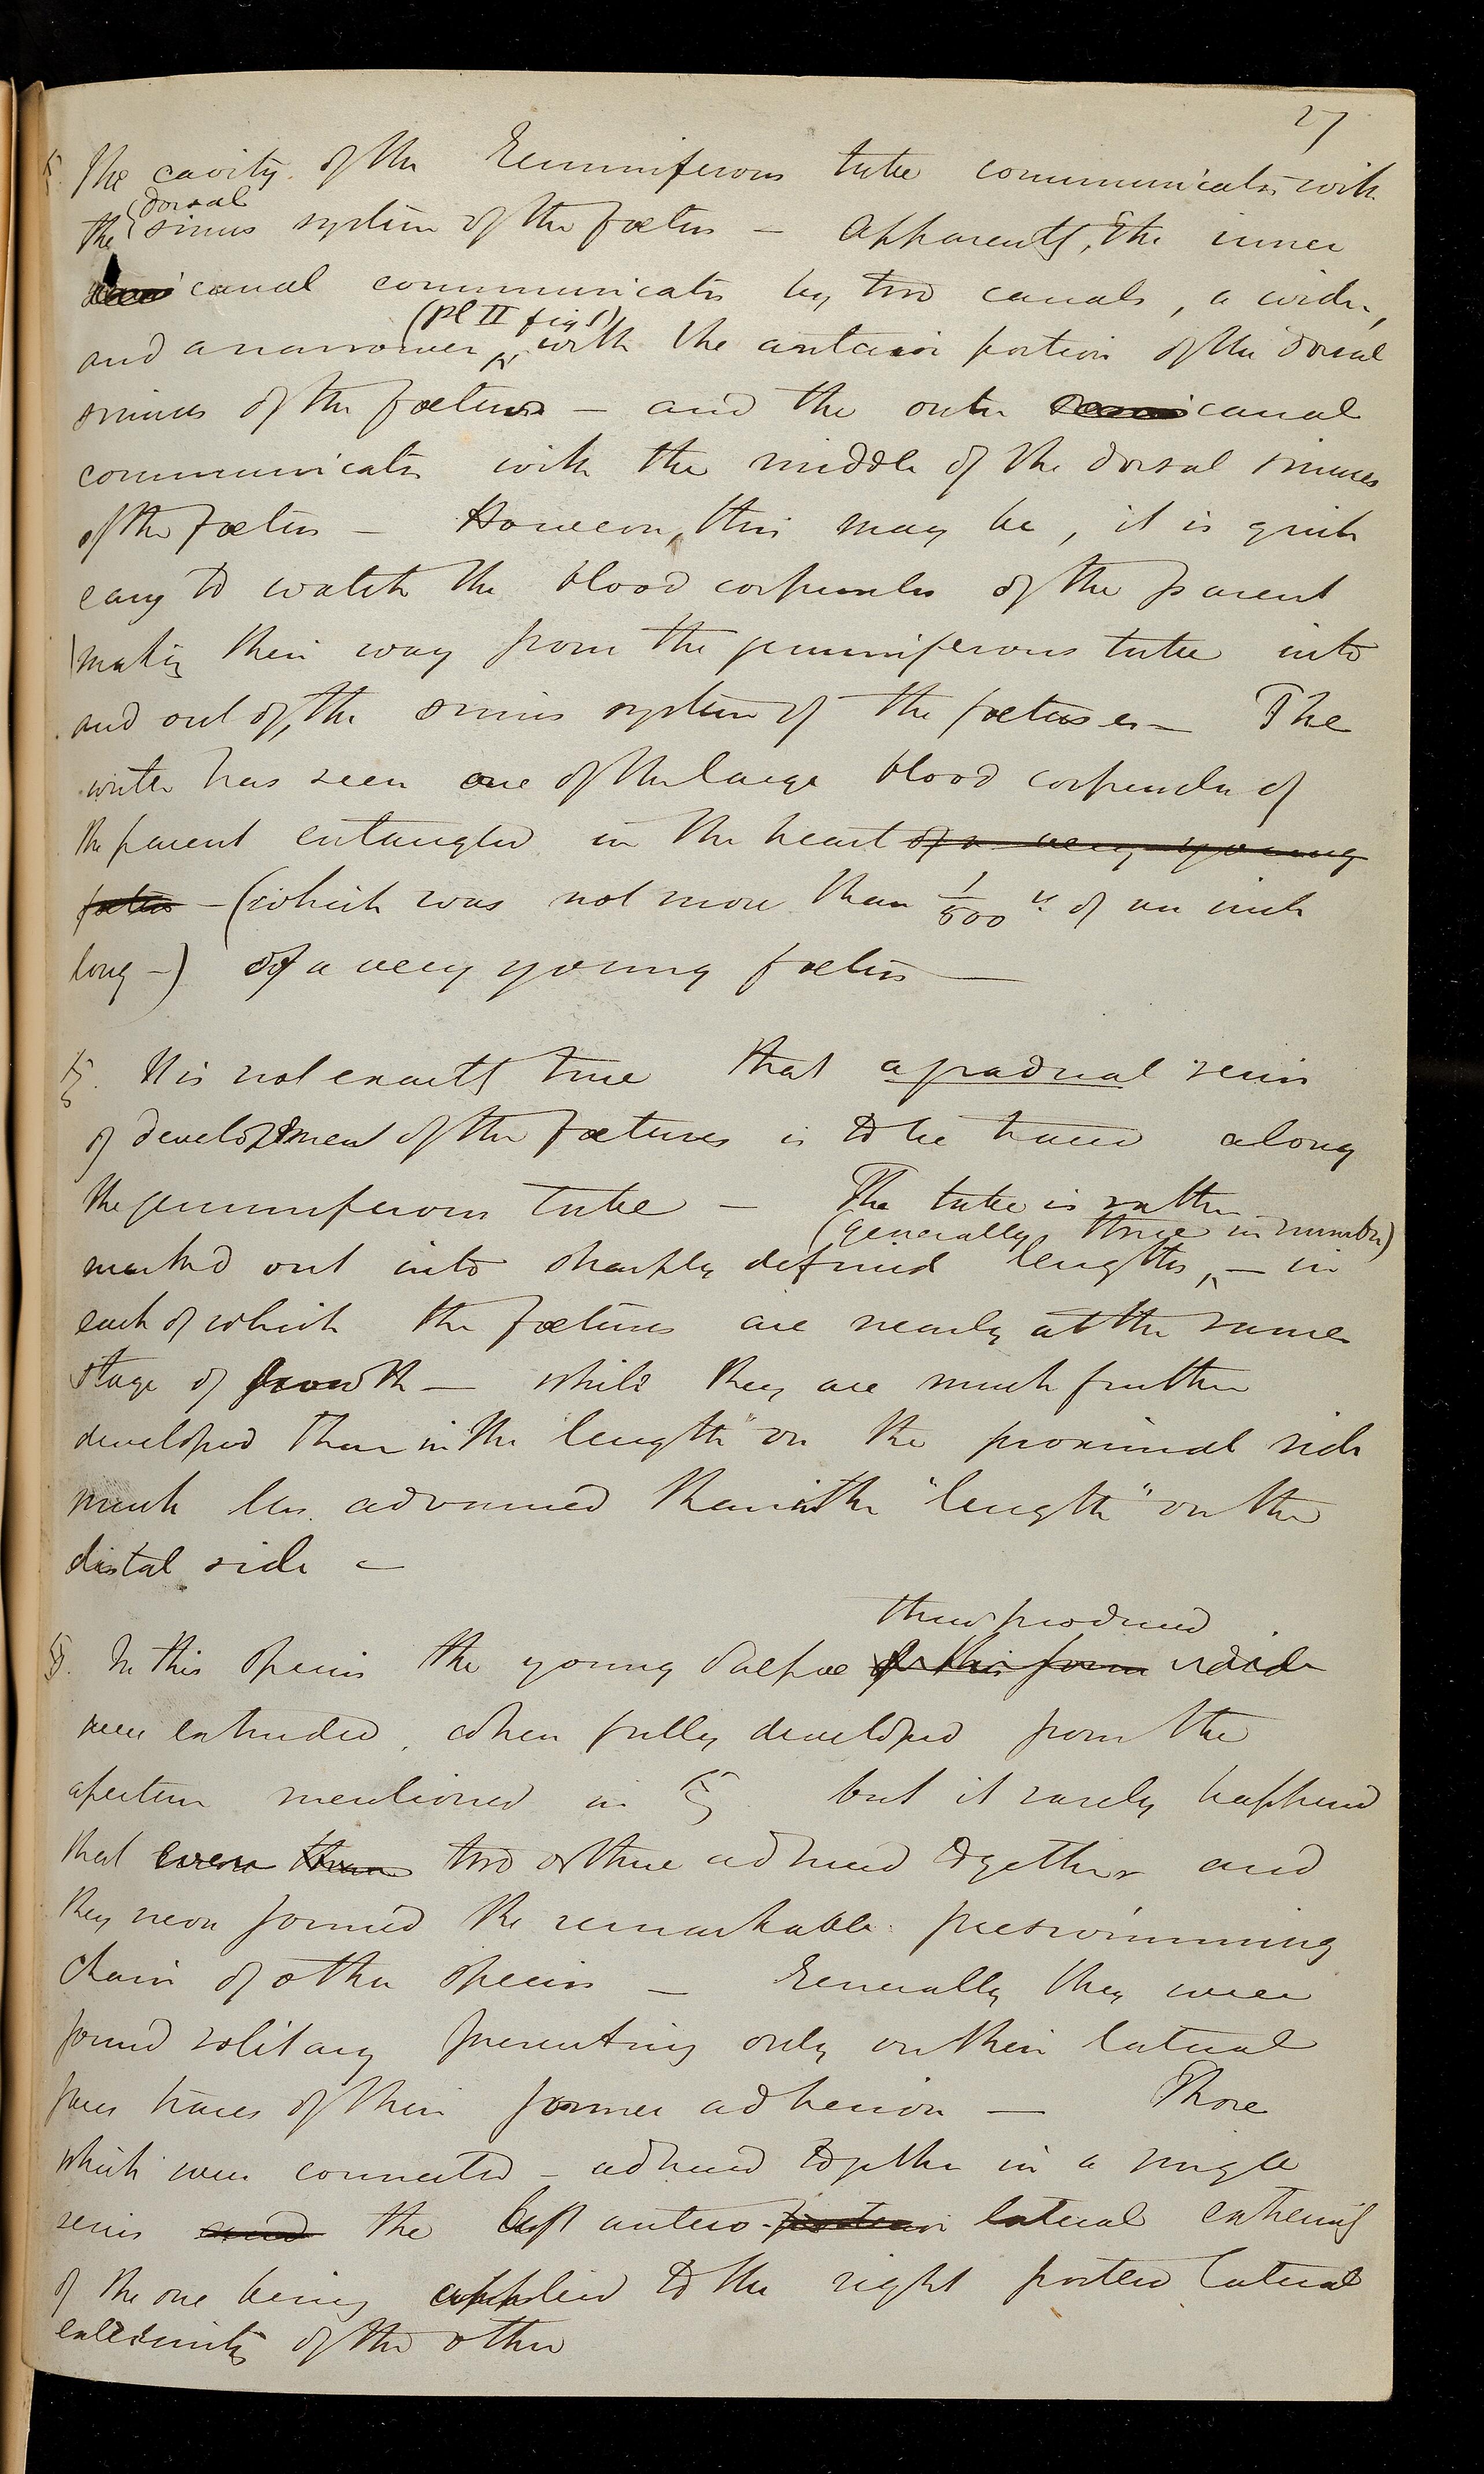 27
§. The cavity of the Gemmiferous tube communicates with
(dorsal
the sinus system of the foetus — Apparently, the inner
canal communicates by two canals, a wider,
(Pl II fig 1)
and a narrower, with the anterior portion of the dorsal
sinus of the foetus — and the outer canal
communicates with the middle of the dorsal sinuses
of the foetus — However, this may be, it is quite
easy to watch the blood corpuscles of the parent
making their way from the gemmiferous tube into
and out of, the sinus system of the foetuses — The
writer has seen one of the large blood corpuscles of
the parent entangled in the heart of a very young
foetus — (which was not more than 1/500 th of an inch
long —) of a very young foetus —
§. It is not exactly true that a gradual series
of development of the foetuses is to be traced along
the gemmiferous tube — The tube is rather
(generally three in number)
marked out into sharply defined lengths, — in
each of which the foetuses are nearly at the same
stage of growth — while they are much further
developed than in the length" on the proximal side
much less advanced than in the "length" on the
distal side —
thus produced
§. In this species the young Salpae of this form
were extruded, when fully developed from the
aperture mentioned in § but it rarely happened
that even than two or three adhered together and
they never formed the remarkable free swimming
chain of other species — Generally they were
found solitary presenting only on their lateral
faces traces of their former adhesion — Those
which were connected — adhered together in a single
series and the left antero-posterior lateral extremity
of the one being applied to the right postero lateral
extremity of the other